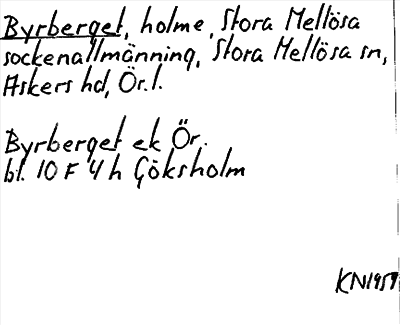 Byrberget, holme, Stora Mellösa
sockenallmänning, Stora Mellösa sn,
Askers hd, Ör. l.
Byrberget ek Ör.
bl. 10 F 4 h Göksholm
KN1959